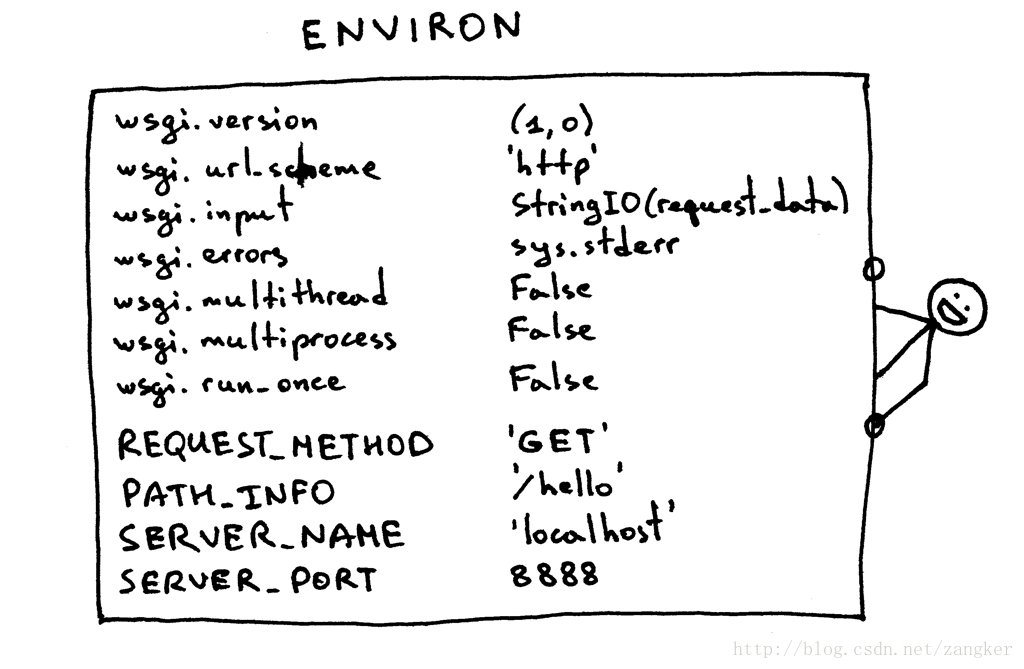 ENVIRON
wsgi.version (1,0)
wsgi.url_scheme 'http'
wsgi.input StringIO(request_data)
wsgi.errors sys.stderr
wsgi.multithread False
wsgi.multiprocess False
wsgi.run_once False
REQUEST_METHOD 'GET'
PATH_INFO '/hello'
SERVER_NAME 'localhost'
SERVER_PORT 8888
http://blog.csdn.net/zangker